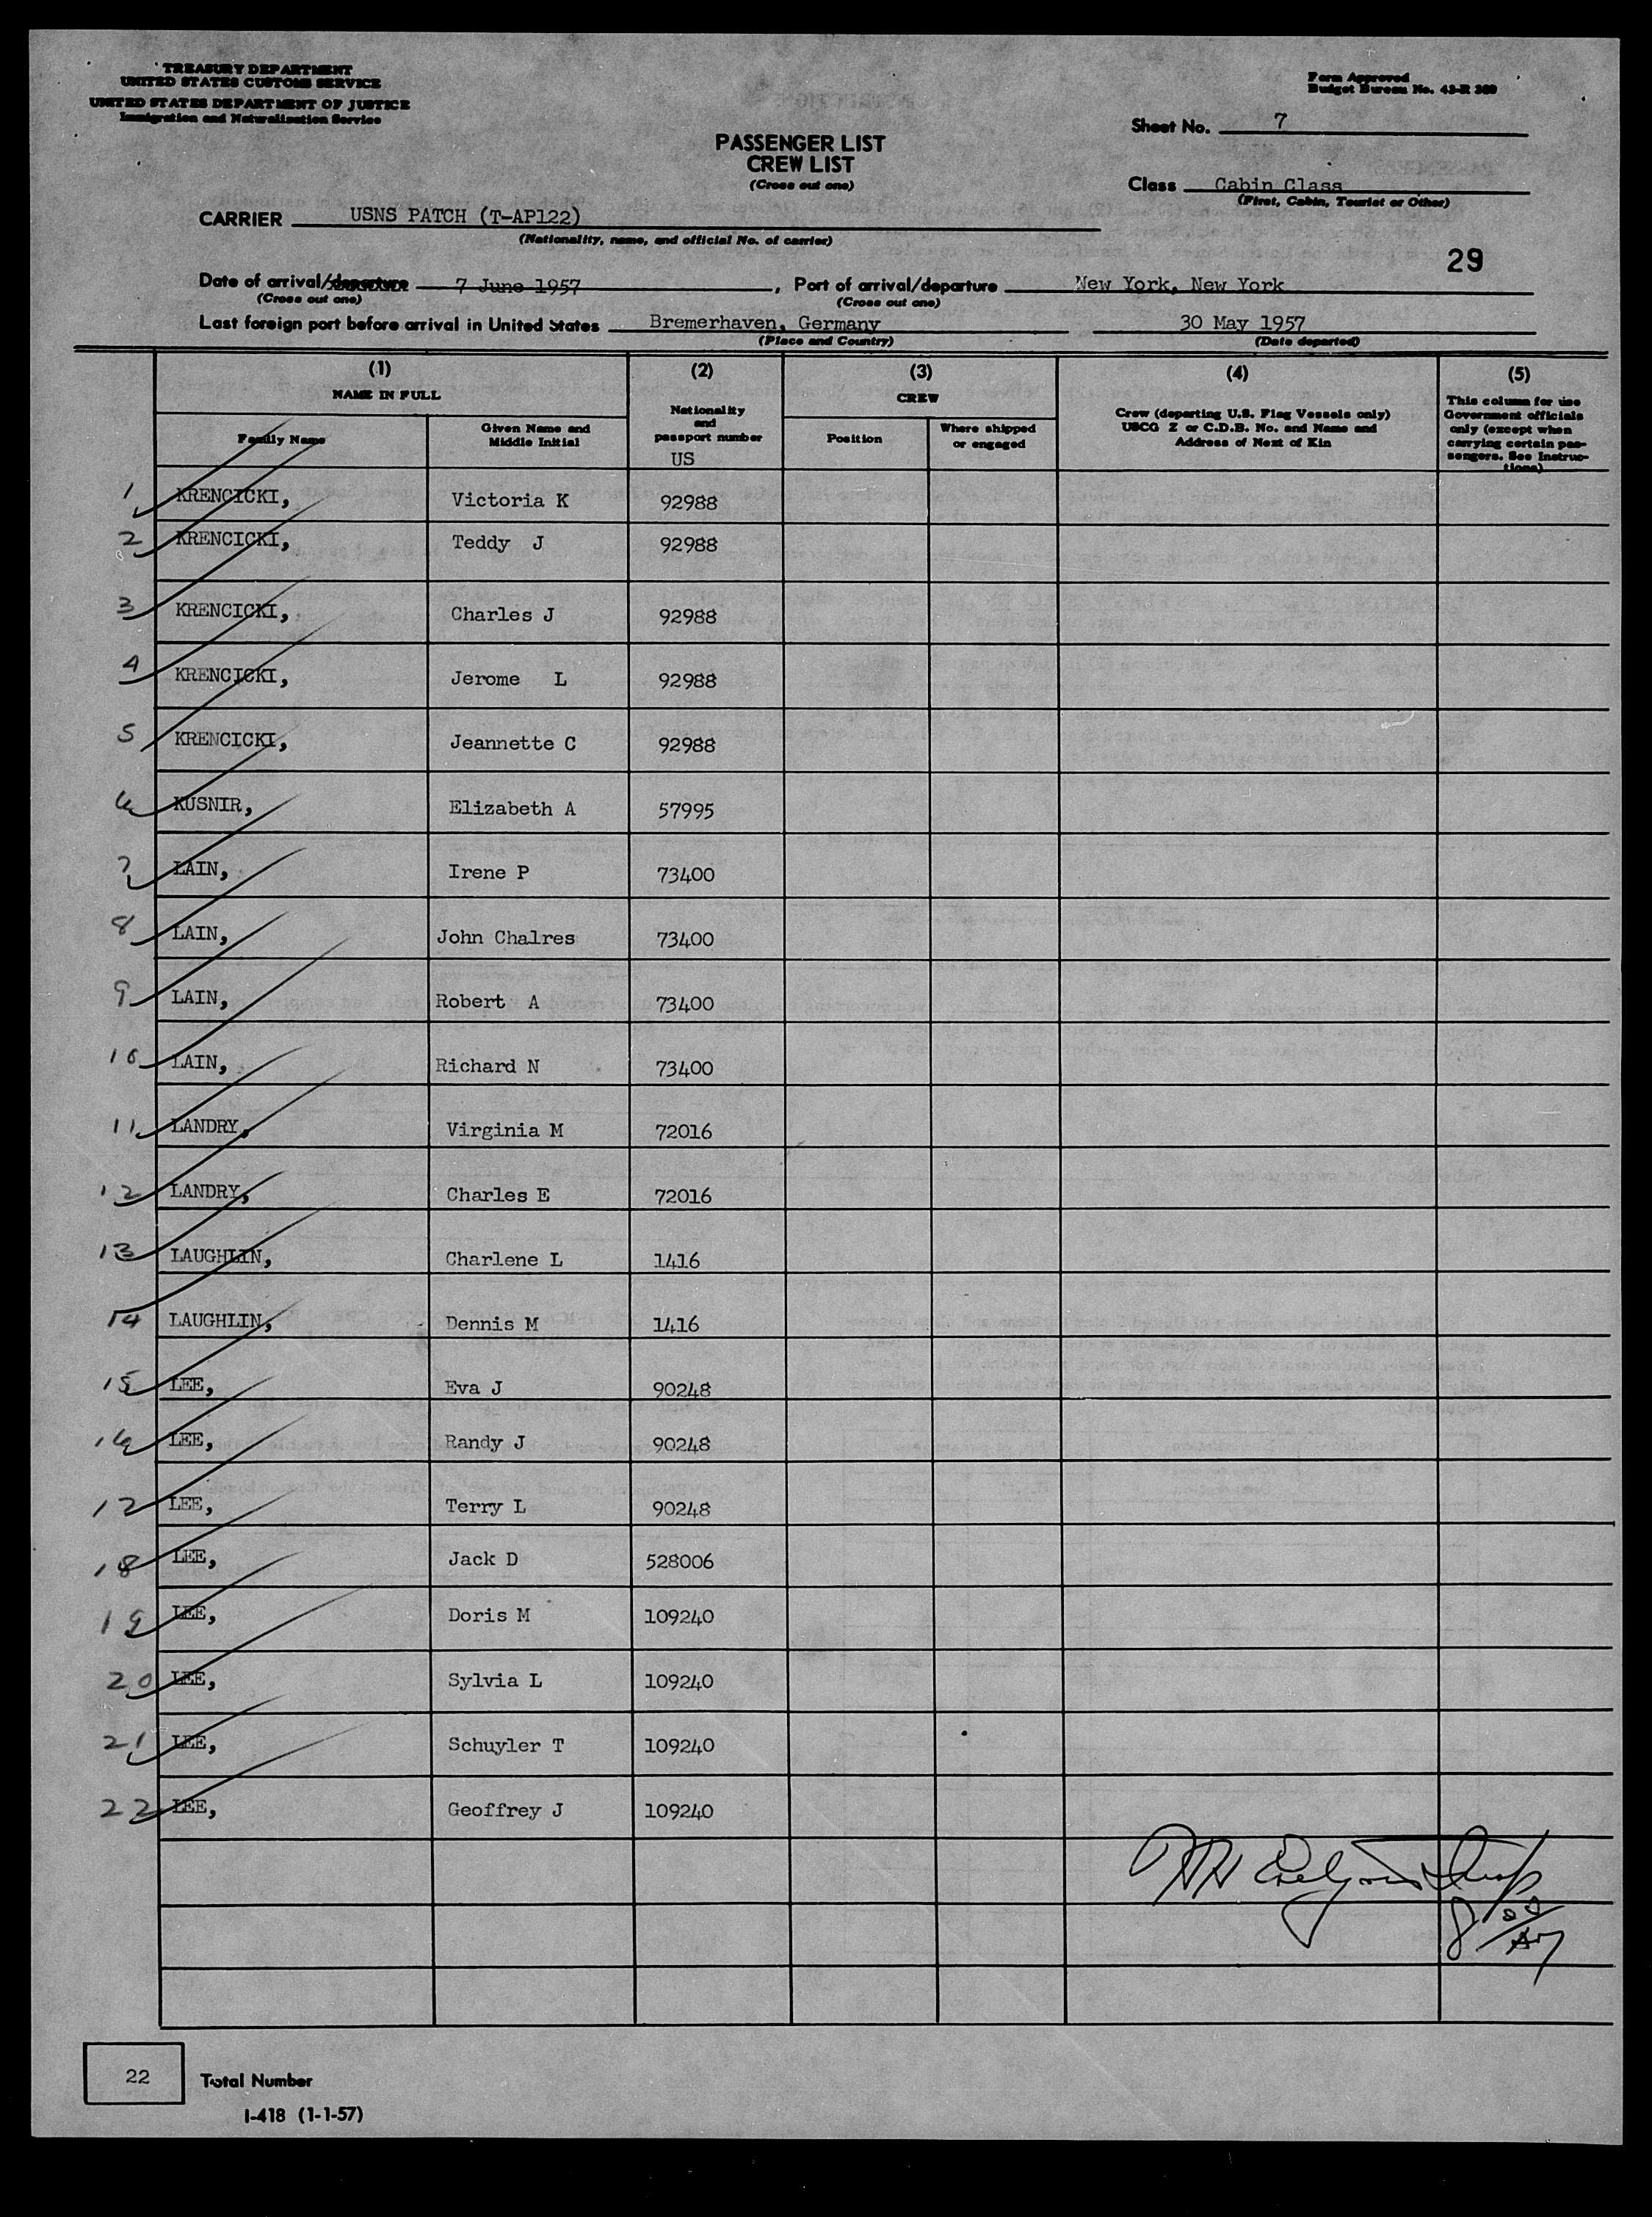 TREASURY DEPARTMENT
UNITED STATES CUSTOMS SERVICE
UNITED STATES DEPARTMENT OF JUSTICE
Immigration and Naturalization Service
Form Approved
Budget Bureau No. 43-R 389
Sheet No. 7
PASSENGER LIST
CREW LIST
(Cross out one)
Class Cabin Class
(First, Cabin, Tourist or Other)
CARRIER USNS PATCH (T-AP122)
(Nationality, name, and official No. of carrier)
29
Date of arrival/departure 7 June 1957, Port of arrival/departure New York, New York
(Cross out one) (Cross out one)
Last foreign port before arrival in United States Bremerhaven, Germany 30 May 1957
(Place and Country) (Date departed)
(1) (2) (3) (4) (5)
NAME IN FULL
Family Name
Given Name and Middle Initial
Nationality and passport number
US
CREW
Position
Where shipped or engaged
Crew (departing U.S. Flag Vessels only) USCG Z or C.D.B. No. and Name and Address of Next of Kin
This column for use Government officials only (except when carrying certain passengers. See Instructions)
1 KRENCICKI, Victoria K 92988
2 KRENCICKI, Teddy J 92988
3 KRENCICKI, Charles J 92988
4 KRENCICKI, Jerome L 92988
5 KRENCICKI, Jeannette C 92988
6 KUSNIR, Elizabeth A 57995
7 LAIN, Irene P 73400
8 LAIN, John Chalres 73400
9 LAIN, Robert A 73400
10 LAIN, Richard N 73400
11 LANDRY, Virginia M 72016
12 LANDRY, Charles E 72016
13 LAUGHLIN, Charlene L 1416
14 LAUGHLIN, Dennis M 1416
15 LEE, Eva J 90248
16 LEE, Randy J 90248
17 LEE, Terry L 90248
18 LEE, Jack D 528006
19 LEE, Doris M 109240
20 LEE, Sylvia L 109240
21 LEE, Schuyler T 109240
22 LEE, Geoffrey J 109240
22 Total Number
I-418 (1-1-57)